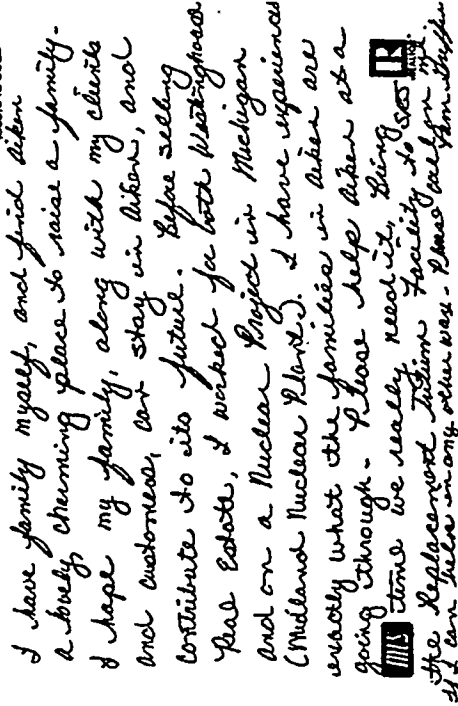 I have family myself, and find Aiken
a lovely charming place to raise a family.
I hope my family, along with my clients
and customers, can stay in Aiken, and
contribute to its future. Before selling
Real Estate, I worked for both Westinghouse
and on a Nuclear Project in Michigan
(Midland Nuclear Plant). I have experienced
exactly what the families in Aiken are
going through - Please help Aiken at a
MLS time we really need it, Being R
the Replacement Tritium Facility to SRS
If I can help in any other way - Please call on me.